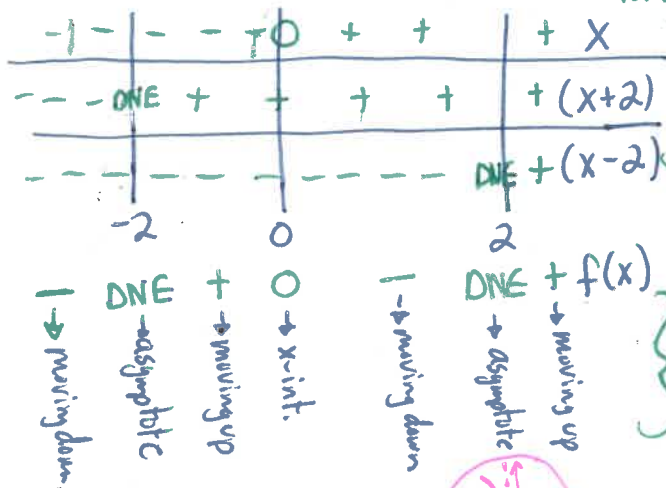 - - - - - - 0 + + + x
- - - DNE + + + + + (x+2)
- - - - - - - - - - - DNE + (x-2)
-2 0 2
- DNE + 0 - DNE + f(x)
→ moving down
→ asymptote
→ moving up
→ x-int.
→ moving down
→ asymptote
→ moving up